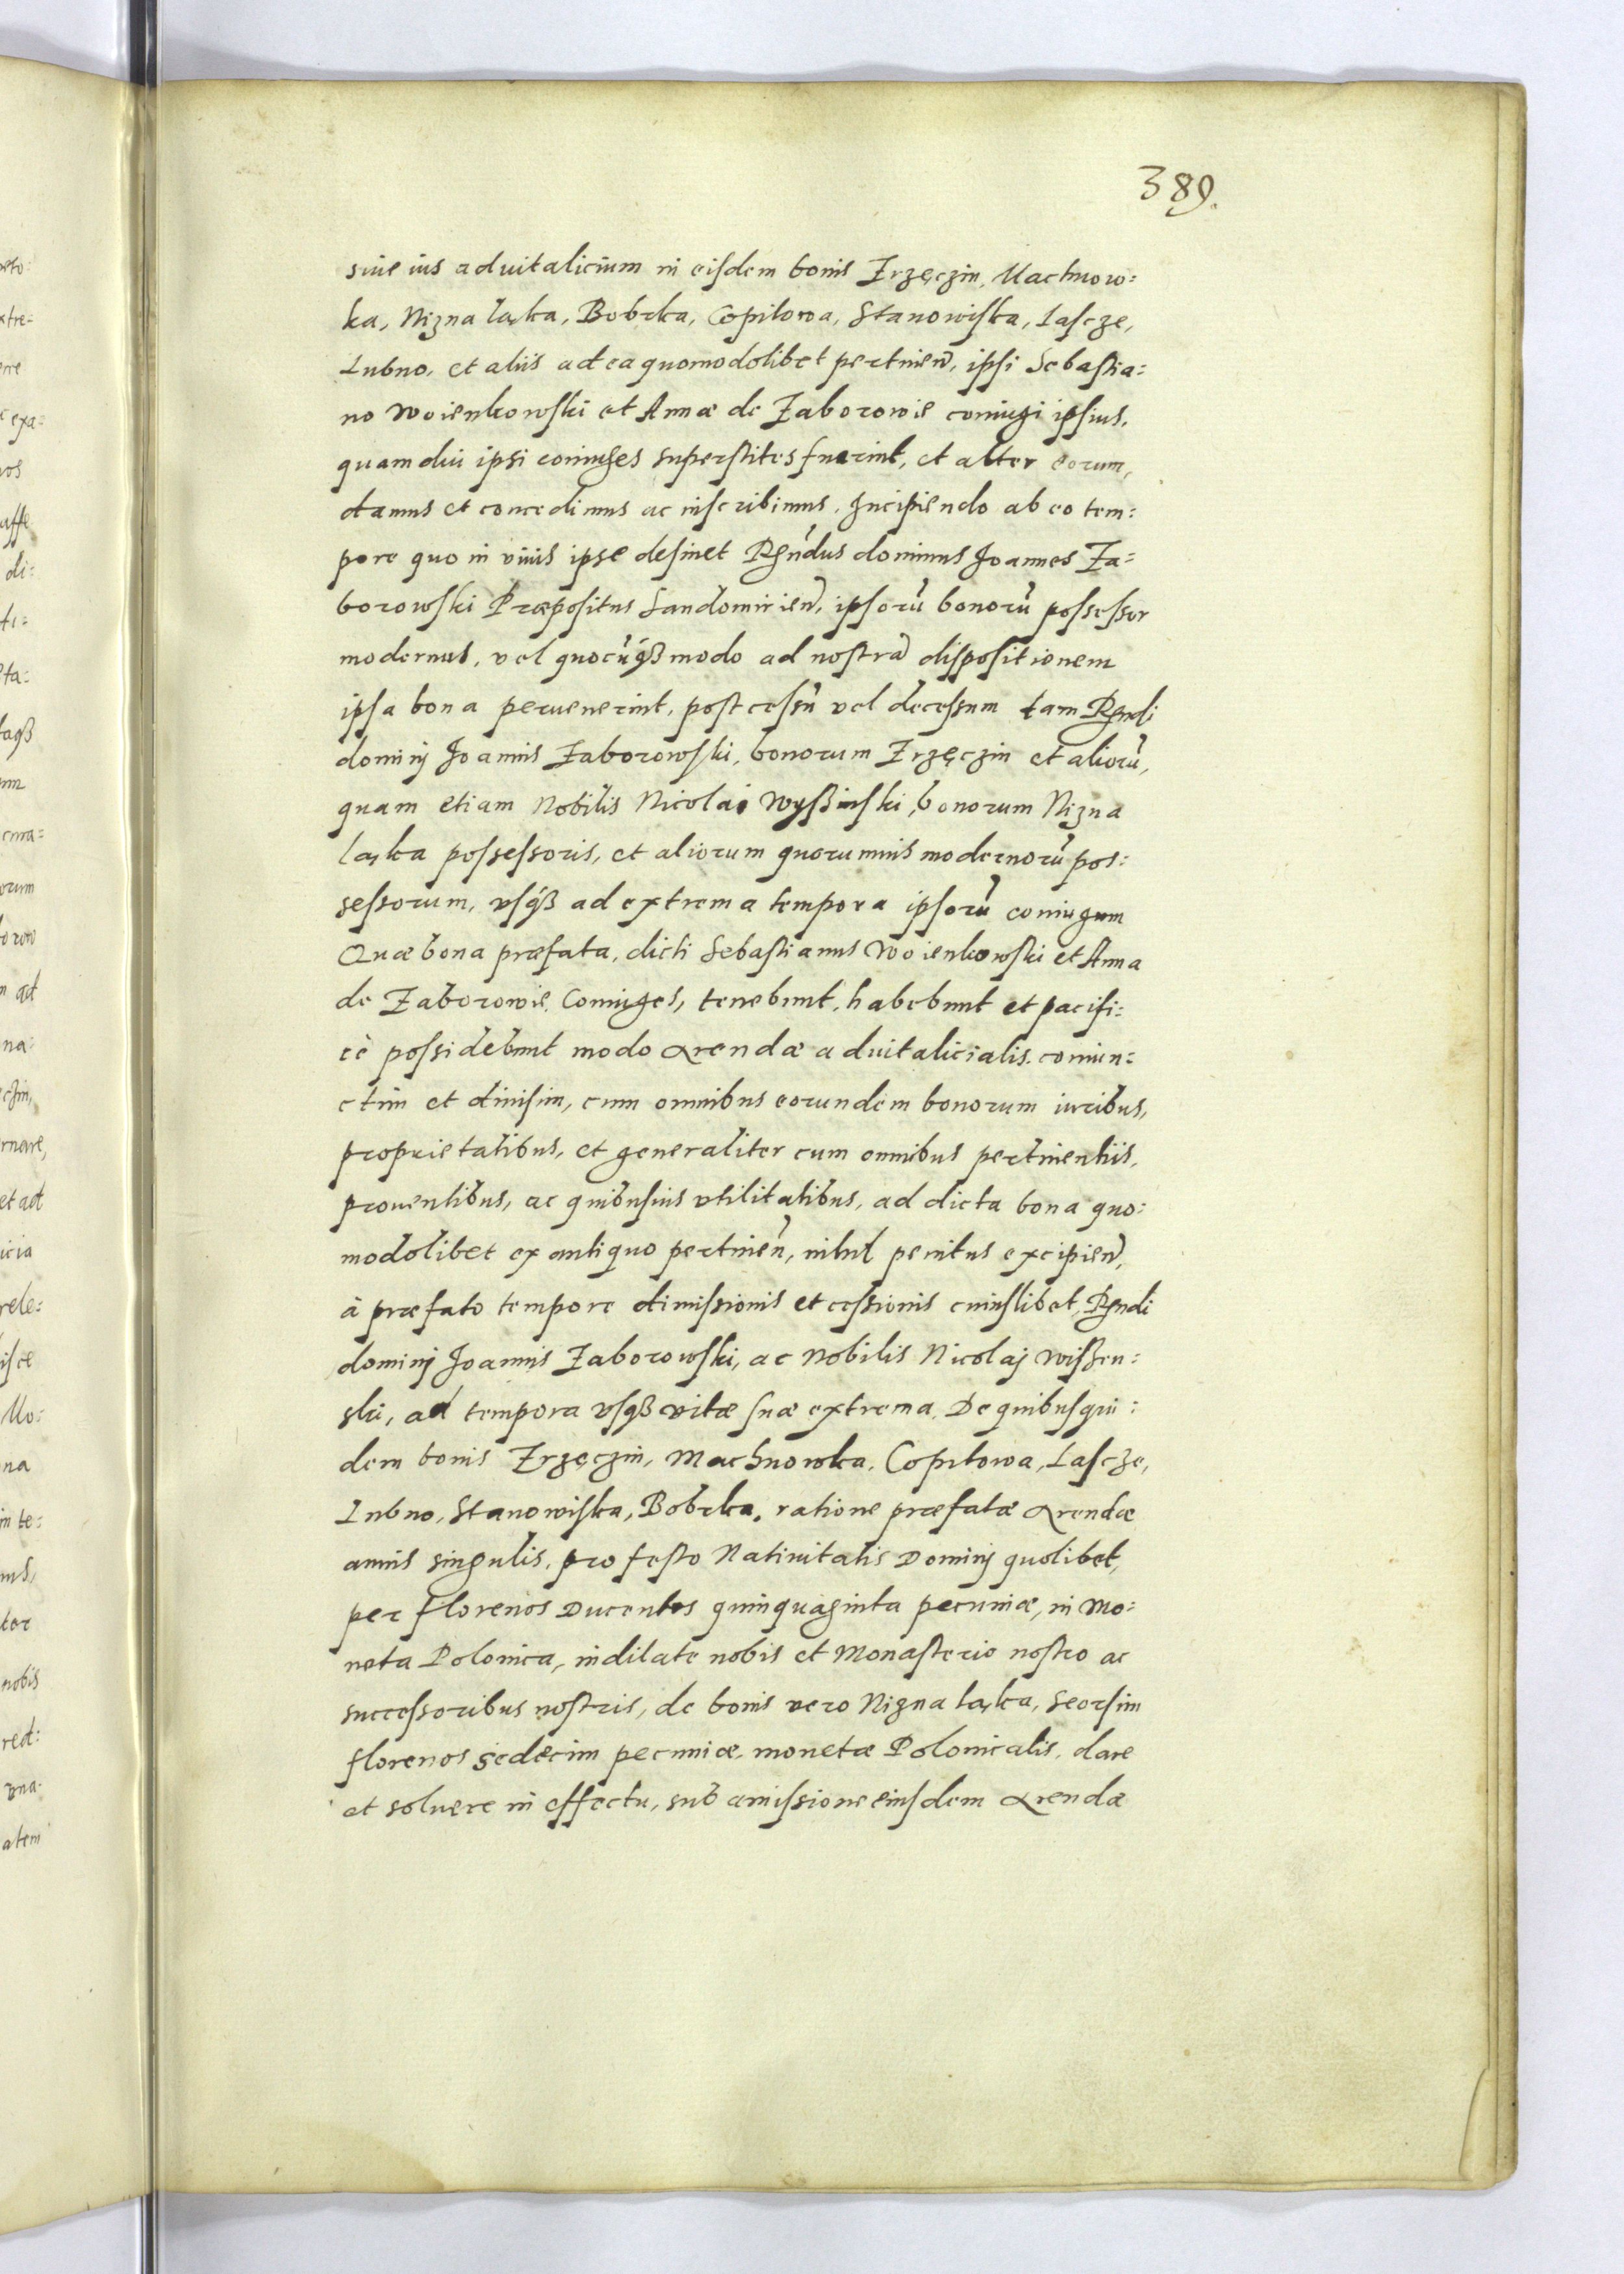 389.
siue ius aduitalicium in eisdem bonis Zrzęczin, Machnow=
ka, Nizna ląka, Bobrka, Copitowa, Stanowiska, Lascze,
Lubno, et aliis ad ea quomodolibet pertinen̄, ipsi Sebastia=
no Woienkowski et Annæ de Zaborowie coniugi ipsius,
quamdiu ipsi coniuges superstites fuerint, et alter eorum,
damus et concedimus ac inscribimus. Incipiendo ab eo tem=
pore quo in viuis ipse desinet Rn̄dus dominus Joannes Za=
borowski Præpositus Sandomirien̄, ipsorū bonorū possessor
modernus, vel quocūqß modo ad nostrā dispositionem
ipsa bona peruenerint, post cessū vel decessum tam Rn̄di
dominj Joannis Zaborowski, bonorum Zrzęczin et aliorū,
quam etiam Nobilis Nicolai Wyßinski, bonorum Nizna
ląka possessoris, et aliorum quorumuis modernorū pos=
sessorum, vsqß ad extrema tempora ipsorū coniugum
Quæ bona præfata, dicti Sebastianus Woienkowski et Anna
de Zaborowie Coniuges, tenebunt, habebunt et pacifi=
cè possidebunt modo Arendæ aduitalicialis coniun=
ctim et diuisim, cum omnibus eorundem bonorum iuribus,
proprietatibus, et generaliter cum omnibus pertinentiis,
prouentibus, ac quibusuis vtilitatibus, ad dicta bona quo=
modolibet ex antiquo pertinen̄, nihil penitus excipien̄,
à præfato tempore dimissionis et cessionis cuiuslibet, Rn̄di
dominj Joannis Zaborowski, ac Nobilis Nicolaj Wißen=
ski, ad tempora vsqß vitæ suæ extrema. De quibusqui=
dem bonis Zrzęczin, Machnowka, Copitowa, Lascze,
Lubno, Stanowiska, Bobrka, ratione præfatæ Arendæ
annis singulis, pro festo Natiuitatis Dominj quolibet,
per florenos Ducentos quinquaginta pecuniæ, in Mo=
neta Polonica, indilate nobis et Monasterio nostro ac
successoribus nostris, de bonis vero Nizna ląka, seorsim
florenos sedecim pecuniæ, monetæ Polonicalis, dare
et soluere in effectu, sub amissione eiusdem Arendæ